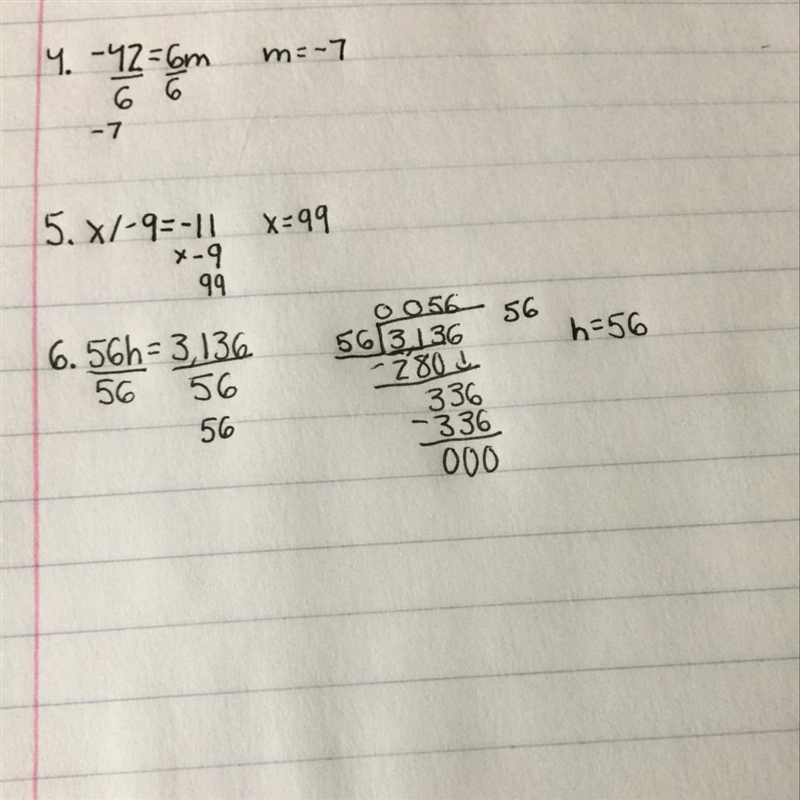 4. -42=6m m=-7
6 6
-7
5. x/-9=-11 x=99
x-9
99
6. 56h=3,136
56 56
56
0056 56
56 3,136 h=56
-280↓
336
-336
000